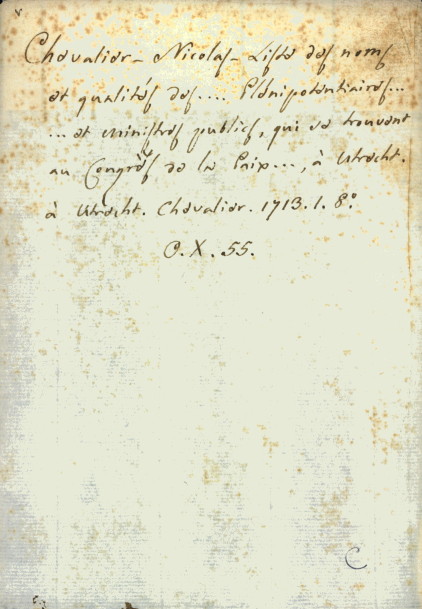 Chevalier - Nicolas - Liste des noms
et qualités des .... Plénipotentiaires...
... et ministres publics, qui se trouvent
au Congrès de la Paix..., à Utrecht.
à Utrecht. Chevalier. 1713. 1. 8º.
O. X. 55.
C